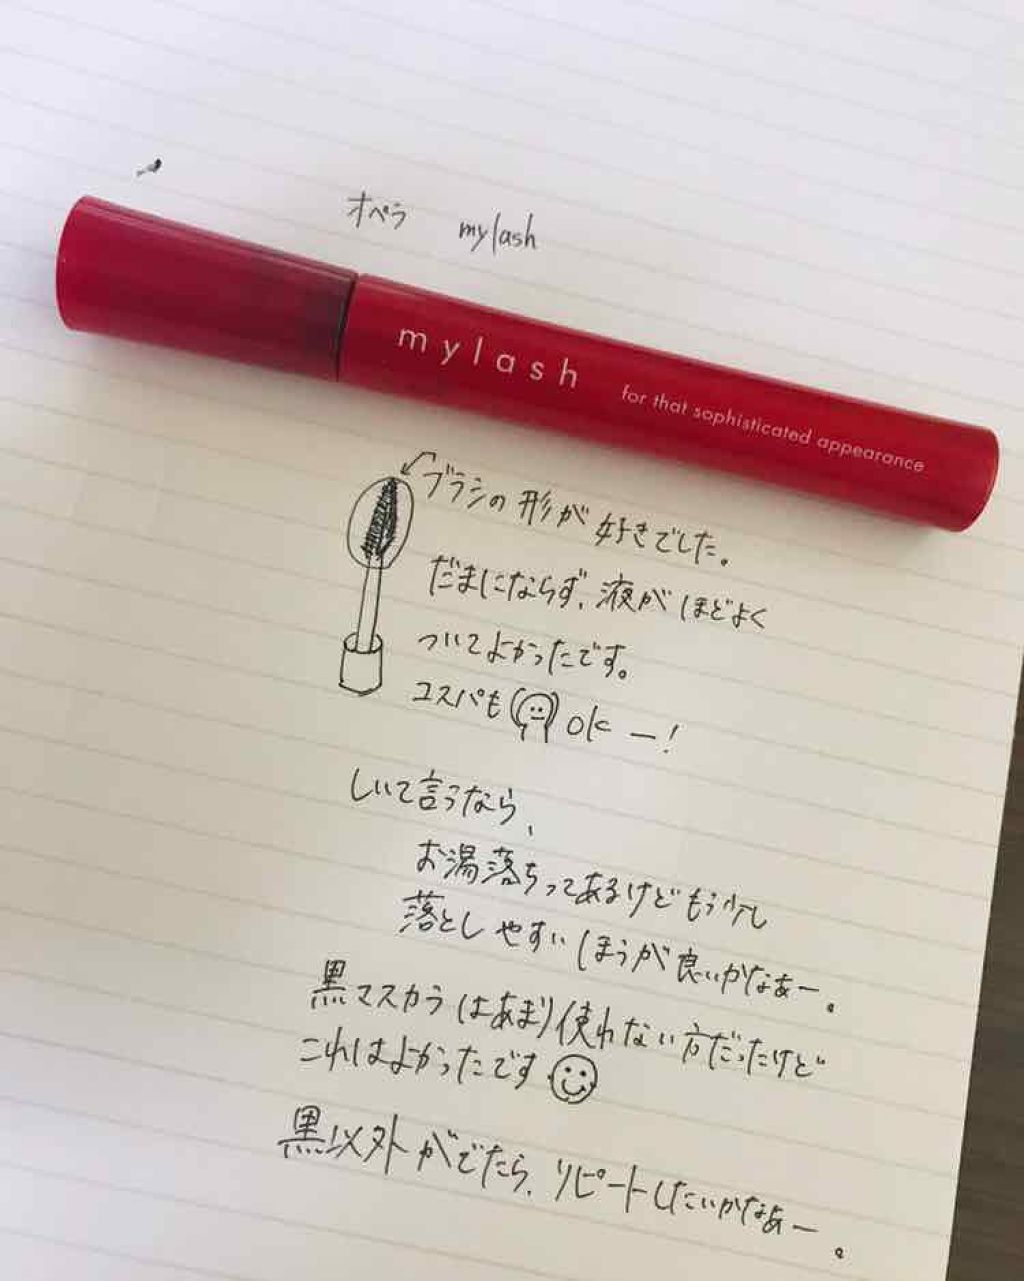 オペラ mylash
mylash for that sophisticated appearance
ブラシの形が好きでした。
だまにならず、液がほどよく
ついてよかったです。
コスパもokー!
しいて言うなら、
お湯落ちってあるけどもう少し
落としやすいほうが良いかなぁー。
黒マスカラはあまり使わない方だったけど
これはよかったです
黒以外がでたら、リピートしたいかなぁー。